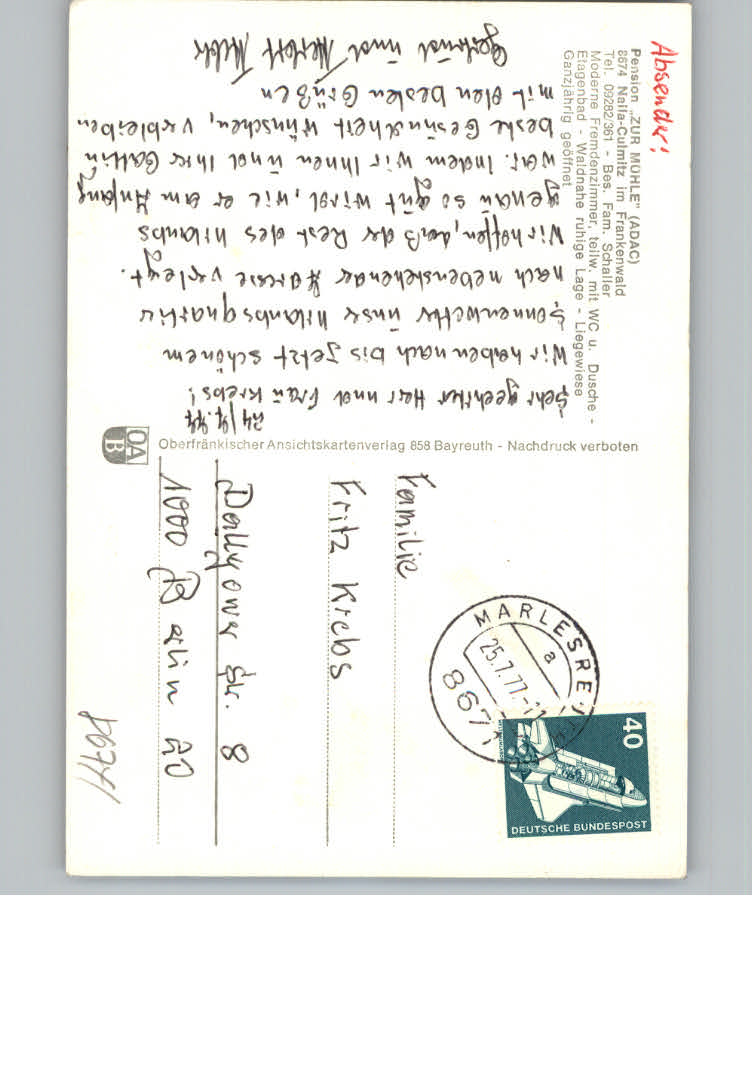 Absender!
Pension „ZUR MÜHLE" (ADAC)
8674 Naila-Culmitz im Frankenwald
Tel. 09282/361 - Bes. Fam. Schaller
Moderne Fremdenzimmer, teilw. mit WC u. Dusche -
Etagenbad - Waldnahe ruhige Lage - Liegewiese
Ganzjährig geöffnet
24/7.77
Sehr geehrter Herr und Frau Krebs!
Wir haben nach bis jetzt schönem
Sonnenwetter unser Urlaubsquartier
nach nebenstehender Adresse verlegt.
Wir hoffen, daß der Rest des Urlaubs
genau so gut wird, wie er am Anfang
war. Indem wir Ihnen und Ihrer Gattin
beste Gesundheit wünschen, verbleiben
mit den besten Grüßen
Gertrud und
Oberfränkischer Ansichtskartenverlag 858 Bayreuth - Nachdruck verboten
OA
B
Familie
Fritz Krebs
Dallgower Str. 8
1000 Berlin 20
MARLESREUTH
a
25.7.77-11
8671
40
DEUTSCHE BUNDESPOST